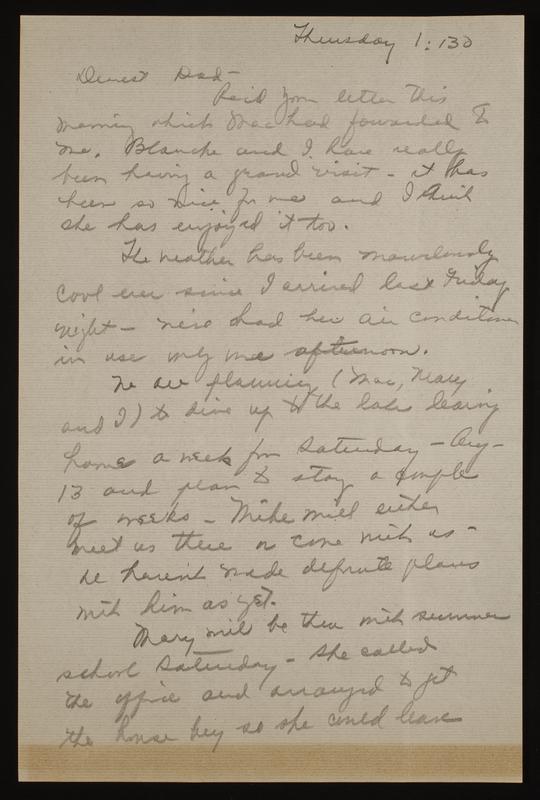 Thursday 1:130
Dearest Dad -
Rec'd your letter this
morning which Mac had forwarded to
me. Blanche and I have really
been having a grand visit - it has
been so nice for me and I think
she has enjoyed it too.
The weather has been marvelously
cool ever since I arrived last Friday
night - we've had her air conditioner
in use only one afternoon.
We are planning (Mac, Mary
and I) to drive up to the lake leaving
home a week from Saturday - Aug -
13 and plan to stay a couple
of weeks - Mike will either
meet us there or come with us -
we haven't made definite plans
with him as yet.
Mary will be thru with summer
school Saturday - She called
the office and arranged to get
the house key so she could leave